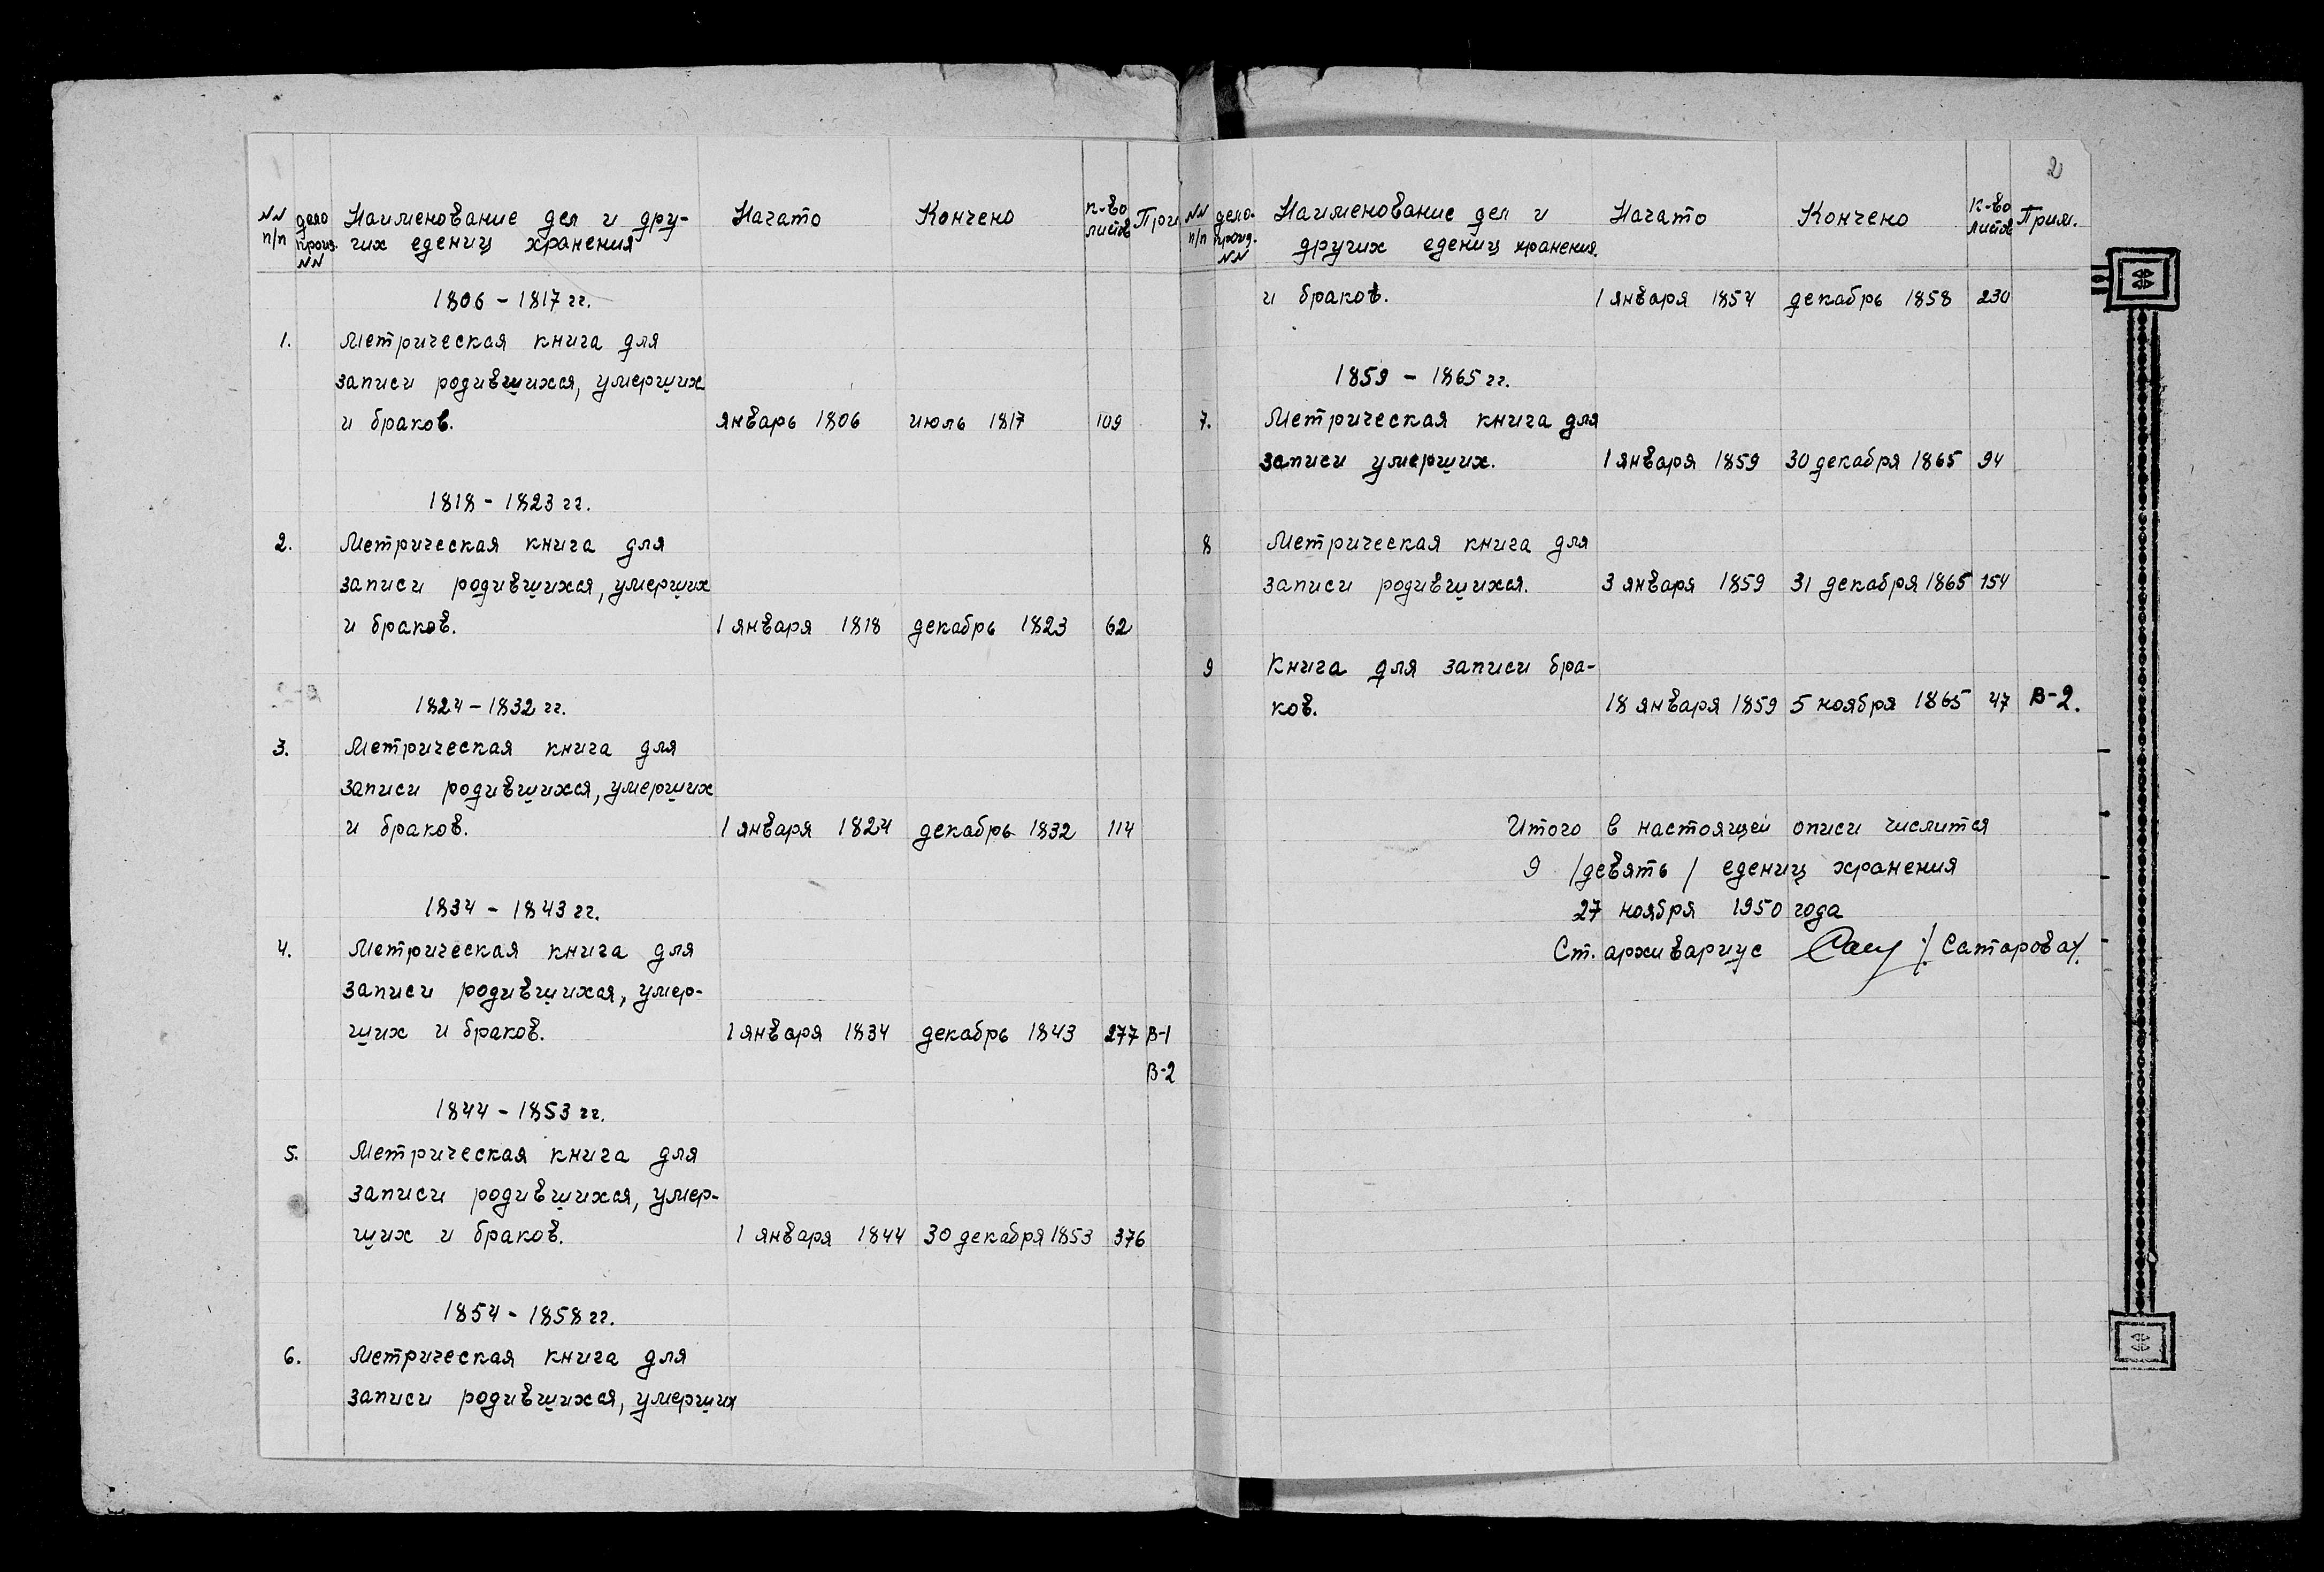 NN п/п дело произ. NN Наименование дел и дру- Начато Кончено к-во листв При
гих едениц хранения
1806 - 1817 гг.
1. Метрическая книга для
записи родившихся, умерших
и браков. январь 1806 июль 1817 109
1818 - 1823 гг.
2. Метрическая книга для
записи родившихся, умерших
и браков. 1 января 1818 декабрь 1823 62
1824 - 1832 гг.
3. Метрическая книга для
записи родившихся, умерших
и браков. 1 января 1824 декабрь 1832 114
1834 - 1843 гг.
4. Метрическая книга для
записи родившихся, умер-
ших и браков. 1 января 1834 декабрь 1843 277 В-1
В-2
1844 - 1853 гг.
5. Метрическая книга для
записи родившихся, умер-
ших и браков. 1 января 1844 30 декабря 1853 376
1854 - 1858 гг.
6. Метрическая книга для
записи родившихся, умерших
2
NN п/п дело- произ. NN Наименование дел и Начато Кончено к-во листв Прим.
других едениц хранения.
и браков. 1 января 1854 декабрь 1858 230
1859 - 1865 гг.
7. Метрическая книга для
записи умерших. 1 января 1859 30 декабря 1865 94
8 Метрическая книга для
записи родившихся. 3 января 1859 31 декабря 1865 154
9 Книга для записи бра-
ков. 18 января 1859 5 ноября 1865 47 В-2.
Итого в настоящей описи числится
9 /девять/ едениц хранения
27 ноября 1950 года
Ст. архивариус /Сатарова/.